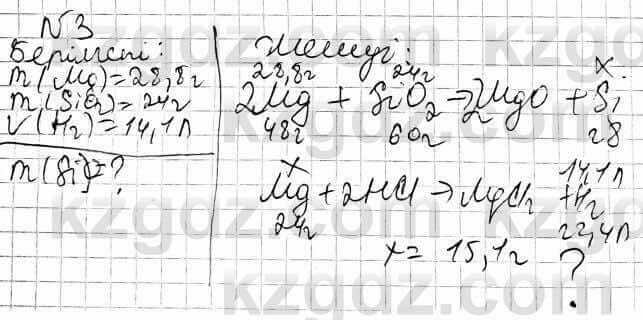 №3
Берілгені:
m(Mg)=28,8г
m(SiO₂)=24г
V(H₂)=14,1л
m(Si)=?
Шешуі:
28,8г 24г x
2Mg + SiO₂ → 2MgO + Si
48г 60г 28
x 14,1л
Mg + 2HCl → MgCl₂ + H₂
24г 22,4л
x = 15,1г ?
kzgdz.com